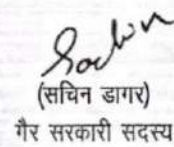 Sachin
(सचिन डागर)
गैर सरकारी सदस्य